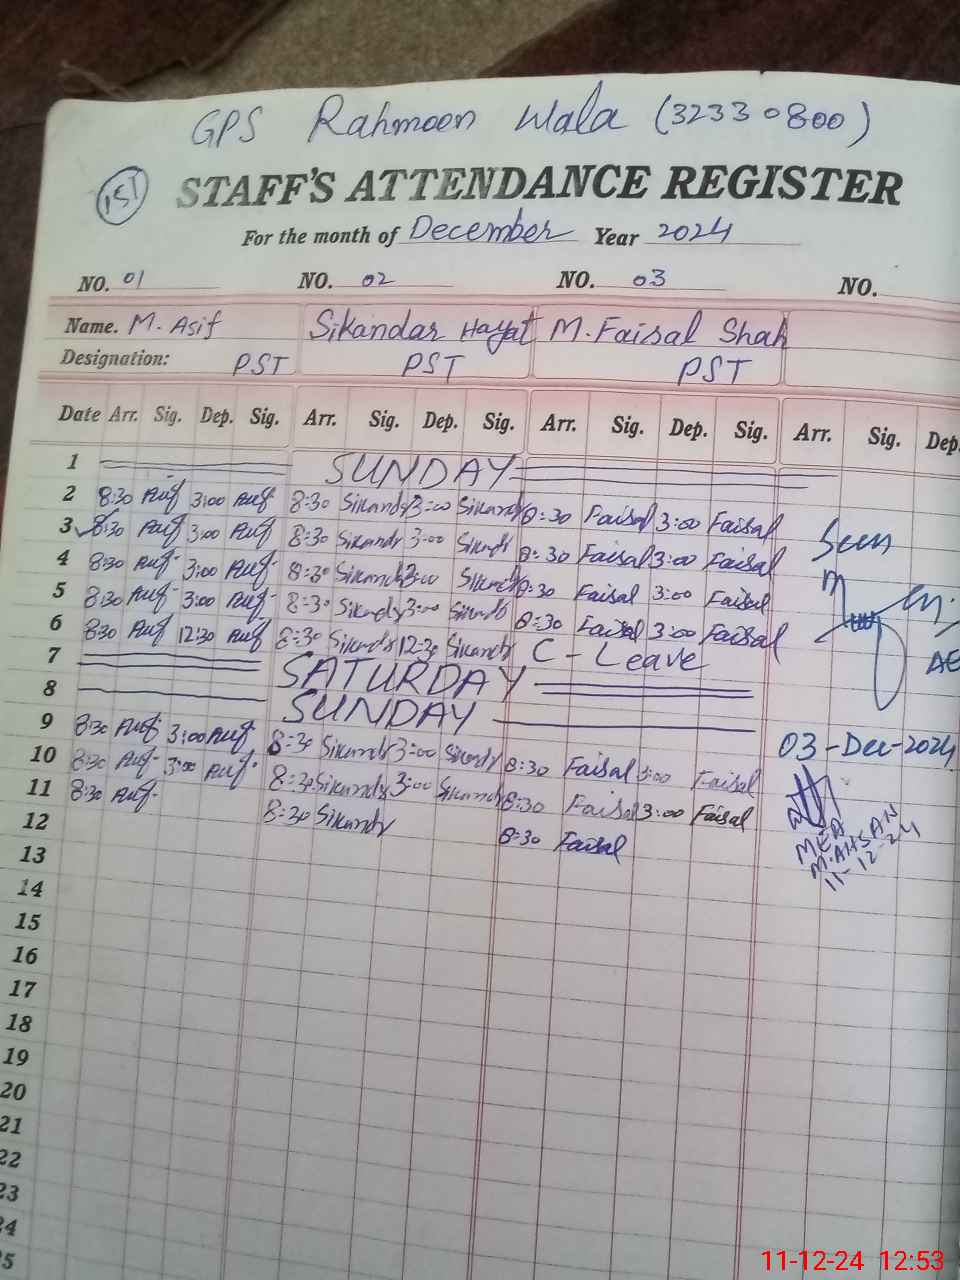 GPS Rahmoon Wala (32330800)
1ST
STAFF'S ATTENDANCE REGISTER
For the month of December Year 2024
NO. 01 NO. 02 NO. 03 NO.
Name. M. Asif Sikandar Hayat M. Faisal Shah
Designation: PST PST PST
Date Arr. Sig. Dep. Sig. Arr. Sig. Dep. Sig. Arr. Sig. Dep. Sig. Arr. Sig. Dep.
1 SUNDAY
2 8:30 Asif 3:00 Asif 8:30 Sikandr 3:00 Sikandr 8:30 Faisal 3:00 Faisal
3 8:30 Asif 3:00 Asif 8:30 Sikandr 3:00 Sikandr 8:30 Faisal 3:00 Faisal Seen
4 8:30 Asif 3:00 Asif 8:30 Sikandr 3:00 Sikandr 8:30 Faisal 3:00 Faisal
5 8:30 Asif 3:00 Asif 8:30 Sikandr 3:00 Sikandr 8:30 Faisal 3:00 Faisal
6 8:30 Asif 12:30 Asif 8:30 Sikandr 12:30 Sikandr C - Leave
7 SATURDAY
8 SUNDAY
9 8:30 Asif 3:00 Asif 8:30 Sikandr 3:00 Sikandr 8:30 Faisal 3:00 Faisal 03-Dec-2024
10 8:30 Asif 3:00 Asif 8:30 Sikandr 3:00 Sikandr 8:30 Faisal 3:00 Faisal
11 8:30 Asif 8:30 Sikandr 8:30 Faisal
MEA
M. AHSAN
11-12-24
12
13
14
15
16
17
18
19
20
21
22
23
24
25
11-12-24 12:53